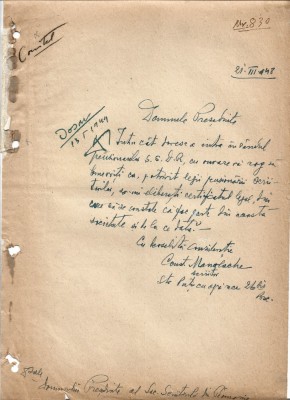 Nr. 830
Comitet
21-III-948
Dosar
13.I.1949
Domnule Președinte
Întru cât doresc a intra în rândul
pensionarilor S.S.R., cu onoare vă rog să
binevoiți ca, potrivit legii pensionării scrii-
torilor, să-mi eliberați certificatul legal, din
care să se constate că fac parte din această
societate și de la ce dată.
Cu deosebită considerațiune
Const. Manolache
scriitor
Str.
Loco
Domnului Președinte al Soc. Scriitorilor din România